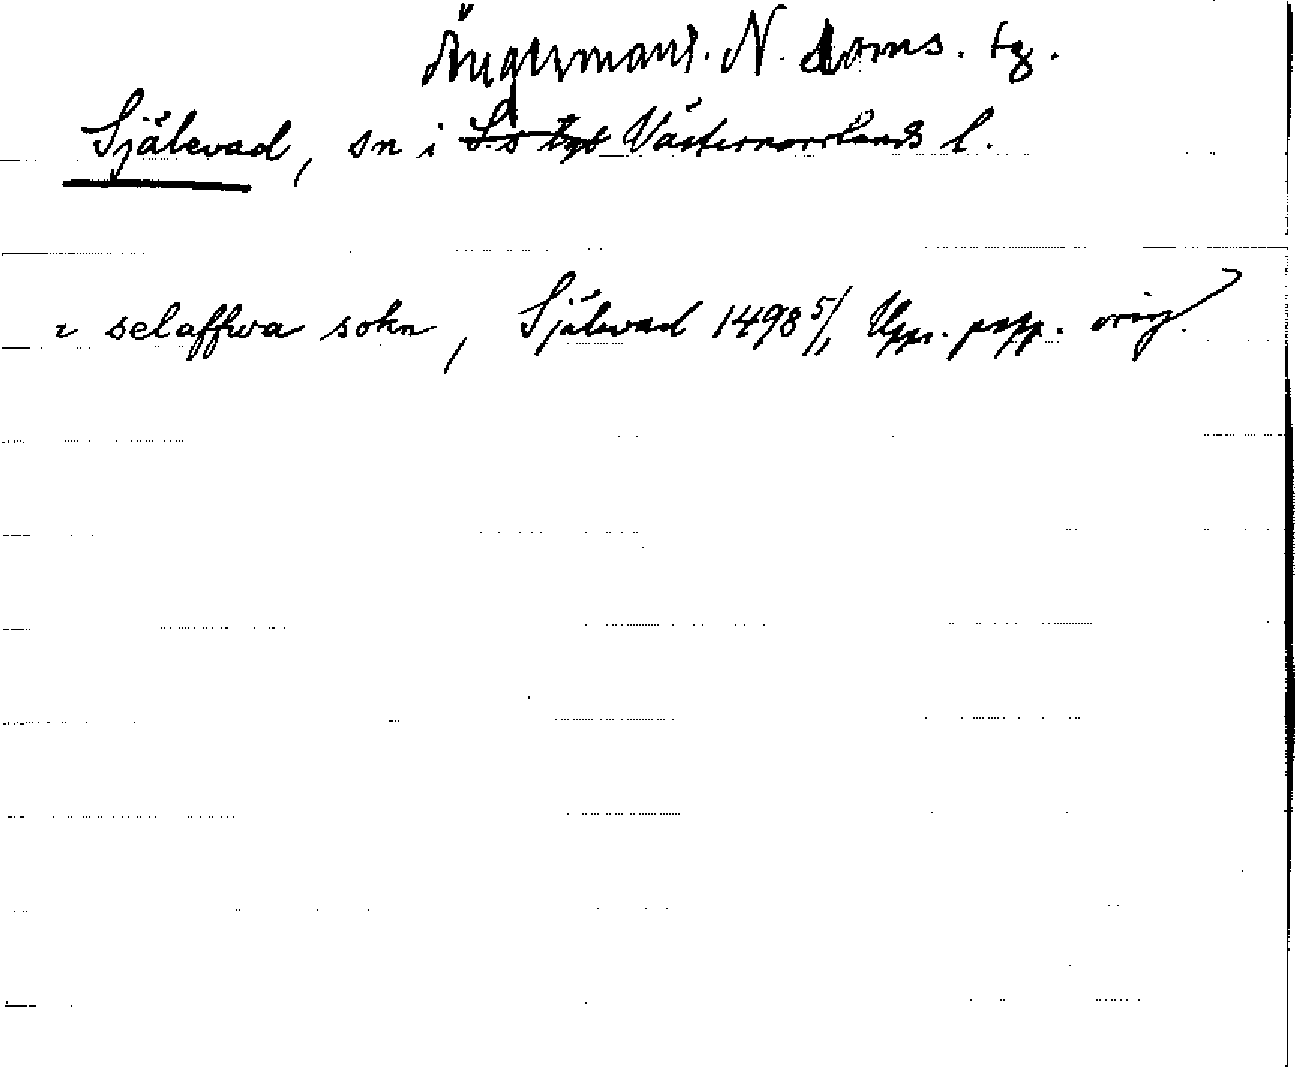 Ångermanl. N. doms. tg.
Själevad, sn i Ss tgs Västernorrlands l.
i selaffwa sokn, Själevad 1498 5/1 Upps. papp. orig.